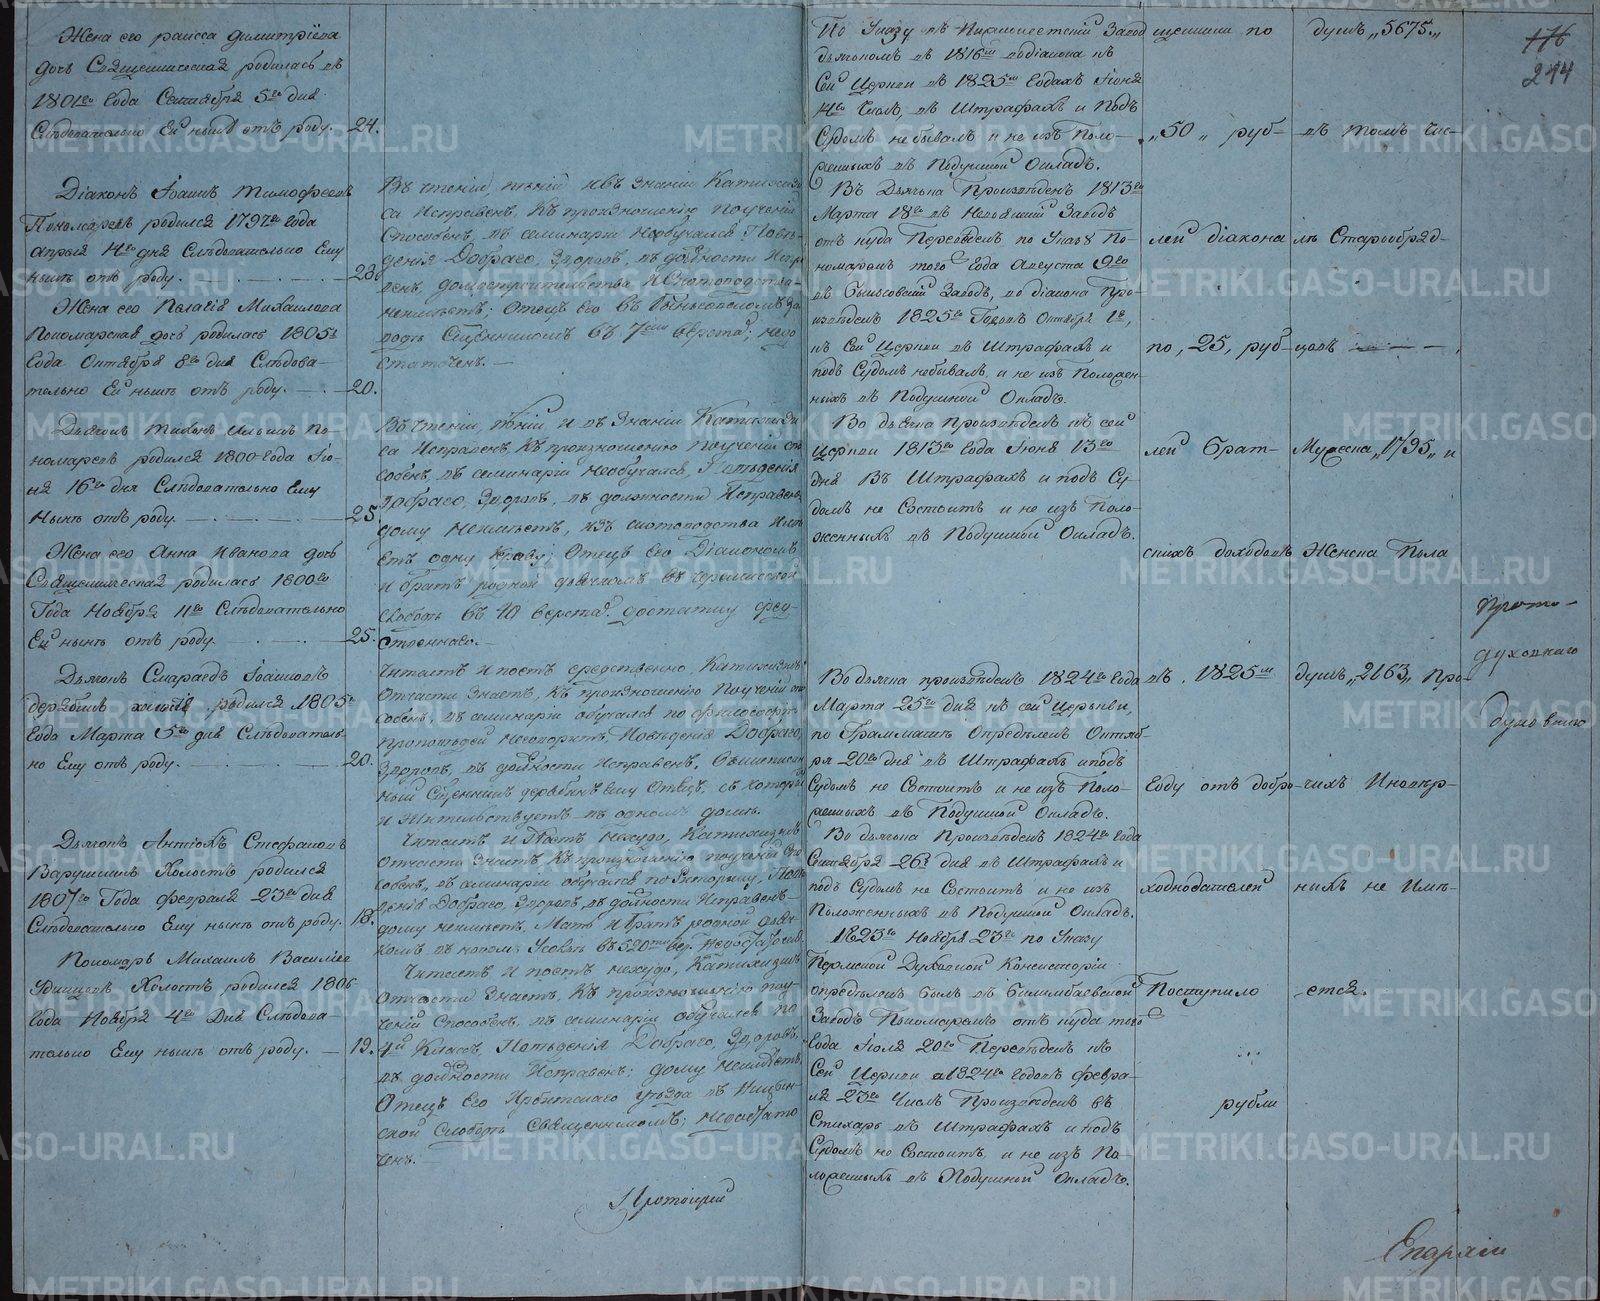 Жена его раисса димитріева
дочь Священническая родилась въ
1801го Года Сентября 5го дня
Слѣдовательно Ей нынѣ отъ роду. 24.
Діаконъ Іоаннъ Тимофеевъ
Пономаревъ родился 1797го Года
апрѣля 14го дня Слѣдовательно Ему
нынѣ отъ роду. 28.
Жена его Пелагія Михаилова
Пономарская дочь родилась 1805го
Года Октября 8го дня Слѣдова-
тельно Ей нынѣ отъ роду. 20.
Дьячокъ Тихонъ Ильинъ По-
номаревъ родился 1800 Года Ію-
ня 16го дня Слѣдовательно Ему
Нынѣ отъ роду. 25
Жена его Анна Иванова дочь
Священническая родилась 1800го
Года Ноября 11го Слѣдовательно
Ей нынѣ отъ роду. 25.
Дьячокъ Іоанновъ
родился 1805го
Года Марта 5го дня Слѣдователь-
но Ему отъ роду. 20.
Дьячокъ Антіохъ Стефановъ
Холостъ родился
1807го Года февраля 23го дня
Слѣдовательно Ему нынѣ отъ роду. 18.
Пономарь Михаилъ Василіевъ
Удинцевъ Холостъ родился 1806
Года Ноября 4го Дня Слѣдова-
тельно Ему нынѣ отъ роду. 19.
Въ чтеніи, пѣніи и въ знаніи Катихизи-
са Исправенъ, Къ произношенію поученій
Способенъ, въ семинаріи Необучался, Повѣ-
денія Добраго, Здоровъ, въ должности Испра-
венъ, домостроительства и Скотоводства
неимѣетъ; Отецъ его въ За-
водѣ Священникомъ въ 7ми верстахъ; недо-
статоченъ.
Въ чтеніи, пѣніи и въ Знаніи Катихизи-
са Исправенъ, Къ произношенію Поученій спо-
собенъ, въ семинаріи необучался, Поведенія
добраго, Здоровъ, въ должности Исправенъ,
дому Неимѣетъ, изъ скотоводства имѣ-
етъ одну Корову; Отецъ его Діакономъ
и братъ родной дьячкомъ въ
Слободѣ въ 10 верстахъ. достатку посред-
ственнаго.
Читаетъ и поетъ средственно, Катихизисъ
Отчасти Знаетъ, Къ произношенію Поученій спо-
собенъ, въ семинаріи обучался по философіи,
проповѣдей несказываетъ, Поведенія Добраго,
Здоровъ, въ должности Исправенъ, вышеписан-
ный Священникъ Ему Отецъ, съ которымъ
и жительствуетъ въ одномъ домѣ.
Читаетъ и Поетъ Нехудо, Катихизисъ
отчасти Знаетъ, Къ произношенію поученій спо-
собенъ, въ семинаріи обучался по Риторику, Пове-
денія Добраго, Здоровъ, въ должности Исправенъ
дому неимѣетъ, Мать и братъ родной дьяч-
комъ въ въ 520ти вер. недостаточенъ.
Читаетъ и поетъ нехудо, Катихизисъ
отчасти Знаетъ, Къ произношенію поу-
ченій Способенъ, въ семинаріи обучался по
4й Классъ, Поведенія Добраго, Здоровъ,
въ должности Исправенъ; дому Неимѣетъ,
Отецъ Его Ирбитскаго уѣзда въ Ницин-
ской Слободѣ Священникомъ; Недостато-
ченъ.
Протоіерей
По Указу въ Завод
дьякономъ въ 1816мъ
Сей Церкви въ 1825мъ Годахъ Іюня
14го Числъ, въ Штрафахъ и Подъ
Судомъ небывалъ и не изъ Поло-
женныхъ въ Подушной Окладъ.
Въ Дьячка Произведенъ 1813го
Марта 18го въ Невьянскій Заводъ
отъ куда Переведенъ по Указу По-
номаремъ того Года Августа 9го
въ Заводъ, во діакона про-
изведенъ 1825го Года Октября 1го,
къ Сей Церкви въ Штрафахъ и
подъ Судомъ небывалъ, и не изъ Положен-
ныхъ въ Подушной Окладъ.
Во дьячка Произведенъ къ сей
Церкви 1813го Года Іюня 13го
дня Въ Штрафахъ и подъ Су-
домъ не Состоитъ и не изъ Поло-
женныхъ въ Подушной Окладъ.
Во дьячка произведенъ 1824го Года
Марта 25го дня къ сей Церькви,
по Граммашъ Опредѣленъ Октяб-
ря 20го дня въ Штрафахъ и подъ
Судомъ не Состоитъ и не изъ Поло-
женныхъ въ Подушной Окладъ.
Во дьячка Произведенъ 1824го Года
Сентября 26го дня въ Штрафахъ и
подъ Судомъ не Состоитъ и не изъ
Положенныхъ въ Подушной Окладъ.
1823го Ноября 23го по Указу
Пермской Духовной Консисторіи
опредѣленъ былъ въ Билимбаевской
Заводъ Пономаремъ отъ куда того
Года Іюля 20го Переведенъ къ
Сей Церкви а 1824го Годовъ февра-
ля 23го Числъ Произведенъ въ
Стихарь въ Штрафахъ и подъ
Судомъ не Состоитъ, и не изъ По-
ложенныхъ въ Подушной Окладъ.
щенники по
„50„ руб-
лей діакона
по „25„ руб-
лей брат-
скихъ доходовъ
въ 1825мъ
Году отъ добро-
ходнодателей
Поступило
рубли
душъ „5675„
въ томъ чис-
лѣ Старообряд-
цовъ
Мужеска „1795„ и
Женска Пола
душъ „2163„ Про-
чихъ Иновѣр-
ныхъ не Имѣ-
ется.
176
244
Прото-
духовнаго
Епархіи